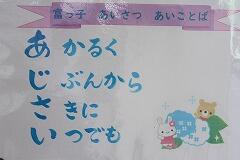 富っ子 あいさつ あいことば
あ かるく
じ ぶんから
さ きに
い つでも